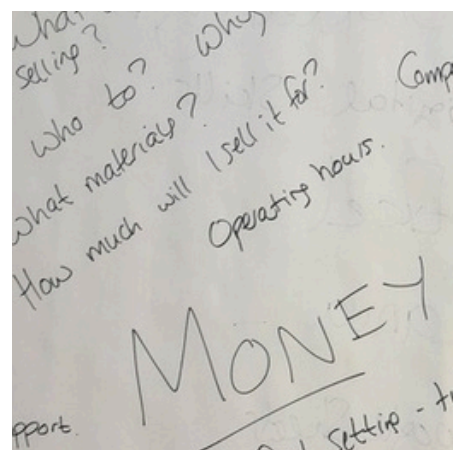 What
selling?
who to? Why
What materials?
How much will I sell it for?
Operating hours.
MONEY
setting -